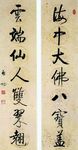 海中大佛八寶蓋
雲端仙人雙翠翹